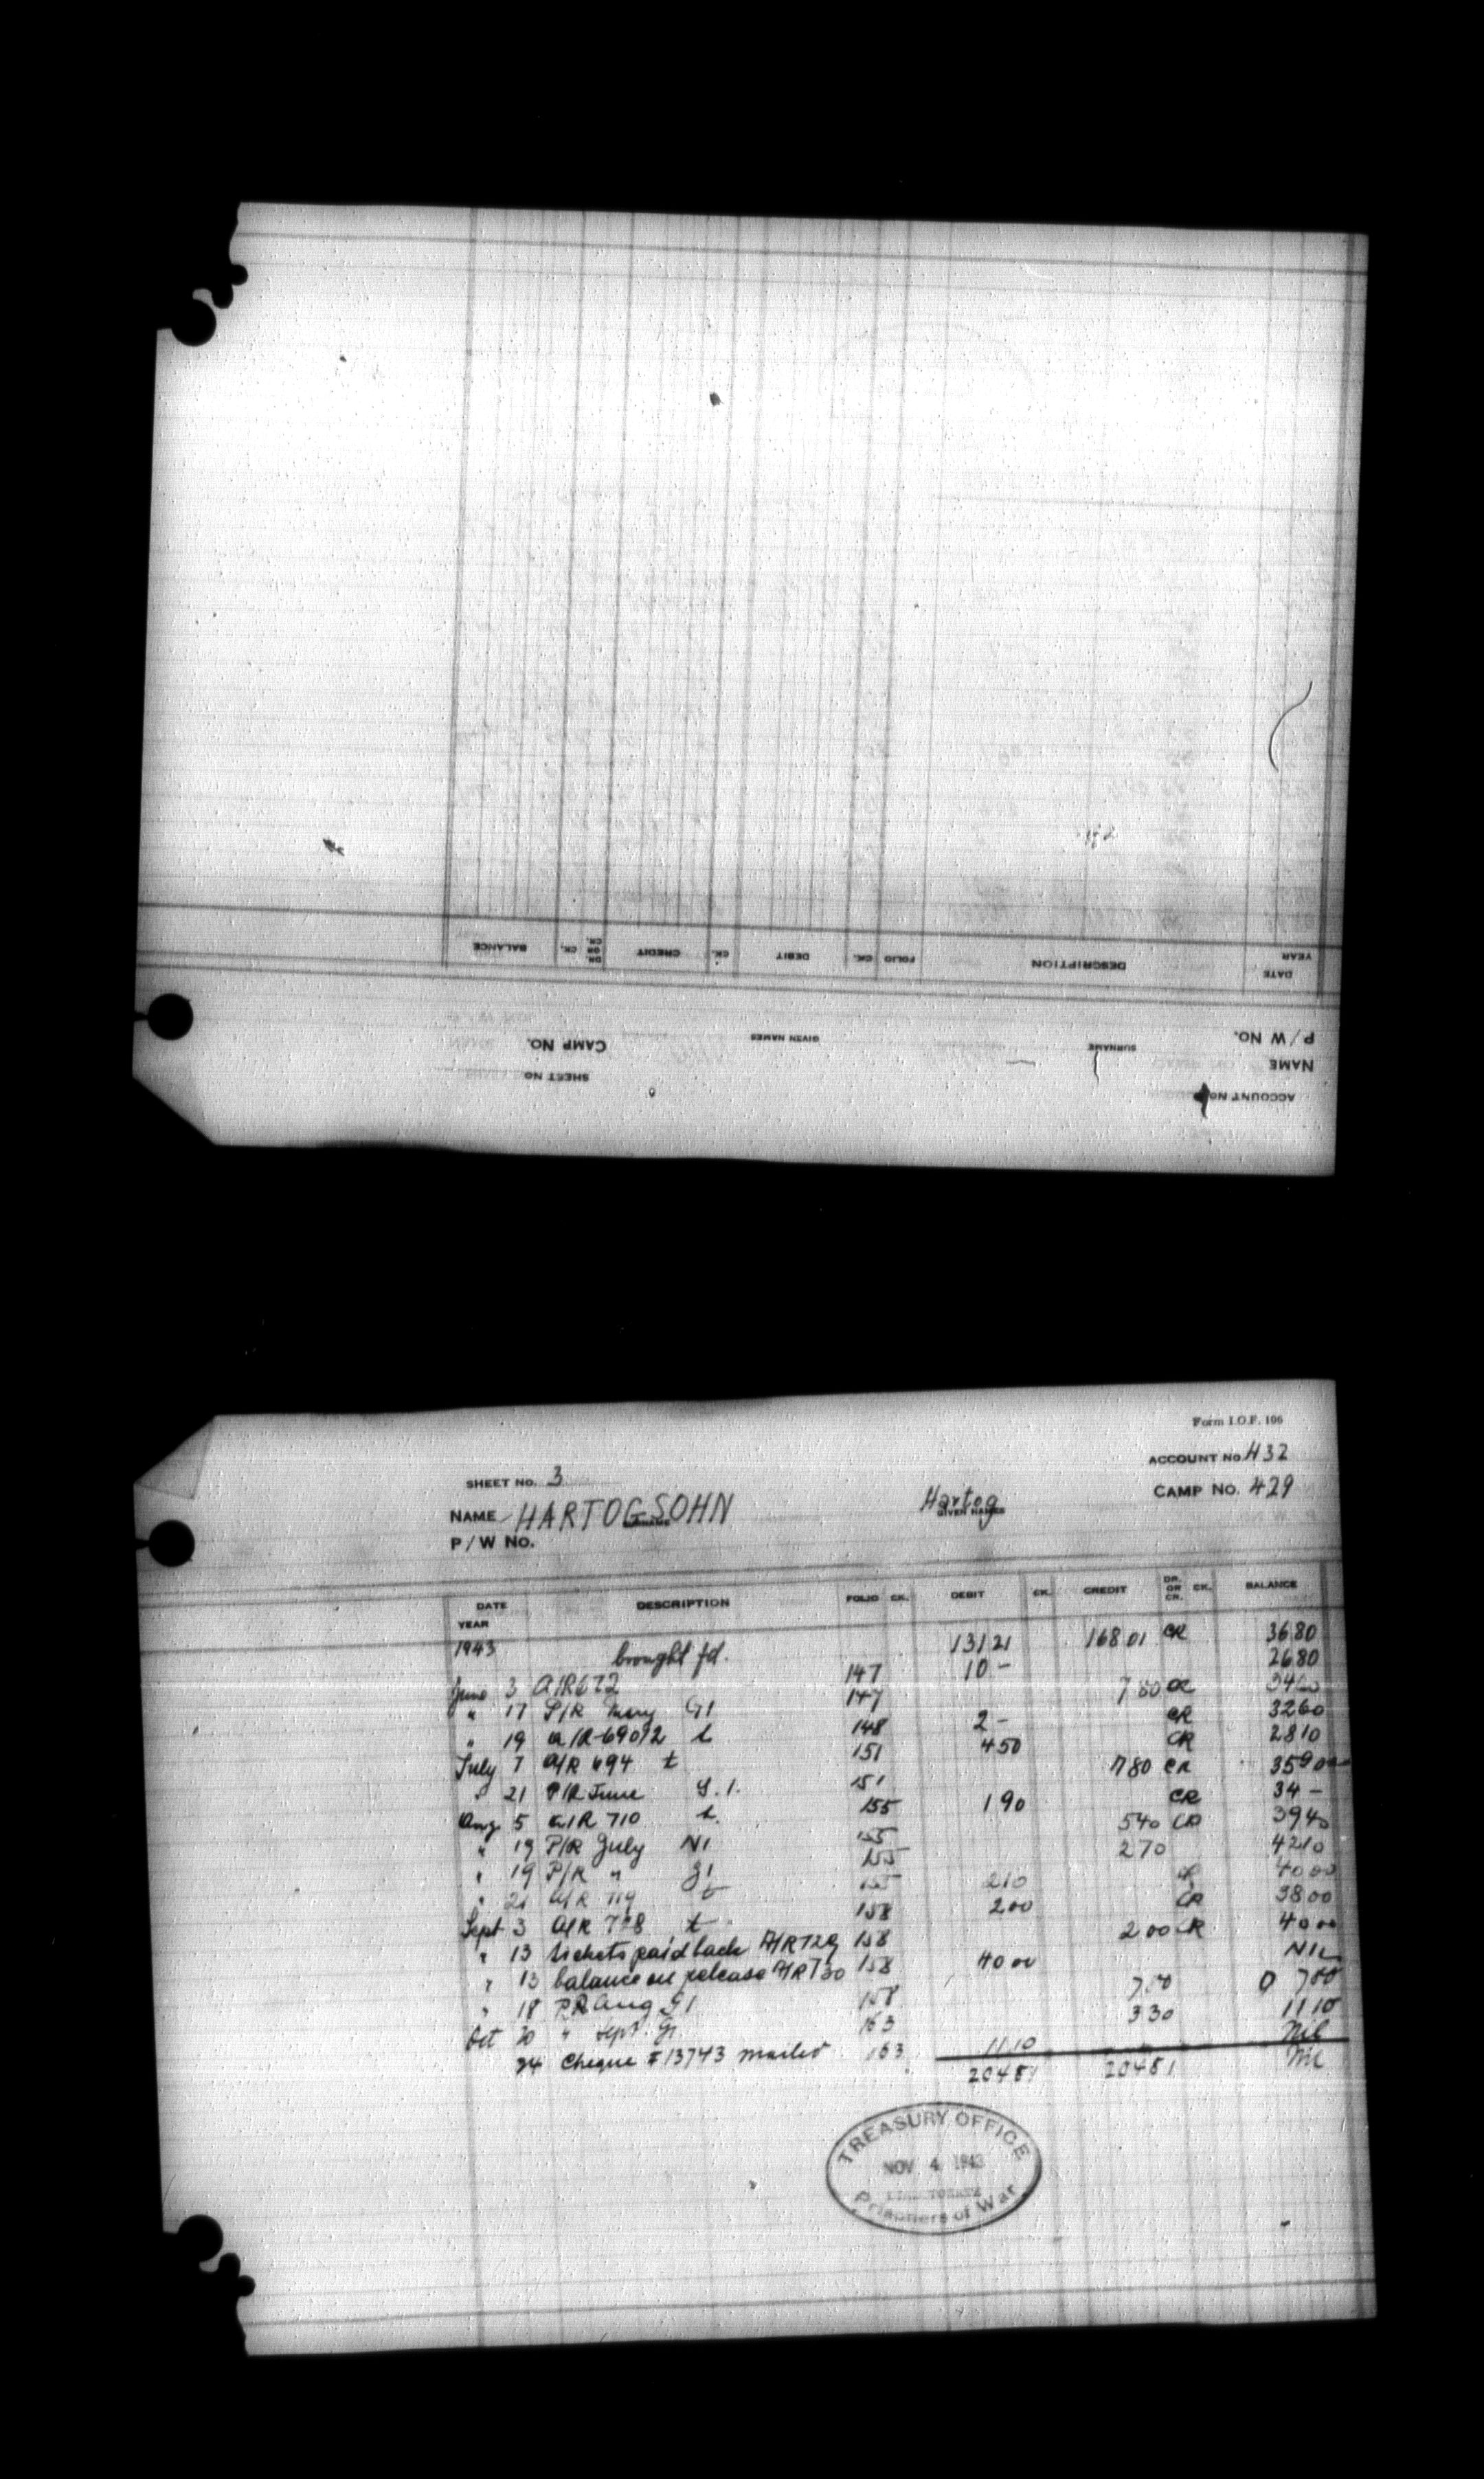 ACCOUNT No.
NAME SURNAME GIVEN NAMES SHEET NO.
P / W NO. CAMP NO.
DATE YEAR DESCRIPTION FOLIO CK. DEBIT CK. CREDIT DR. OR CR. CK. BALANCE
Form I.O.F. 106
SHEET No. 3 ACCOUNT No. 432
NAME HARTOGSOHN SURNAME Hartog GIVEN NAMES CAMP NO. 429
P / W No.
DATE YEAR DESCRIPTION FOLIO CK. DEBIT CK. CREDIT DR. OR CR. CK. BALANCE
1943 brought fd. 131 21 168 01 CR 36 80
June 3 A/R 672 147 10 - 26 80
" 17 P/R May G1 147 7 80 CR 34 60
" 19 a/R-690/2 t 148 2 - CR 32 60
July 7 A/R 694 t 151 4 50 CR 28 10
" 21 P/R June G.1. 151 7 80 CR 35 90
Aug 5 a/R 710 t 155 1 90 CR 34 -
" 19 P/R July N1 155 5 40 CR 39 40
" 19 P/R " G1 155 2 70 42 10
" 21 A/R 719 t 155 2 10 CR 40 00
Sept 3 A/R 728 t 158 2 00 CR 38 00
" 13 tickets paid back A/R 729 158 2 00 CR 40 00
" 13 balance on release A/R 730 158 40 00 NIL
" 18 P.R Aug G1 158 7 80 7 80
Oct 20 " Sept. G1 163 3 30 11 10
24 Cheque # 13743 mailed 163 11 10 Nil
204 81 204 81 Nil
TREASURY OFFICE
NOV 4 1943
DIRECTORATE
Prisoners of War